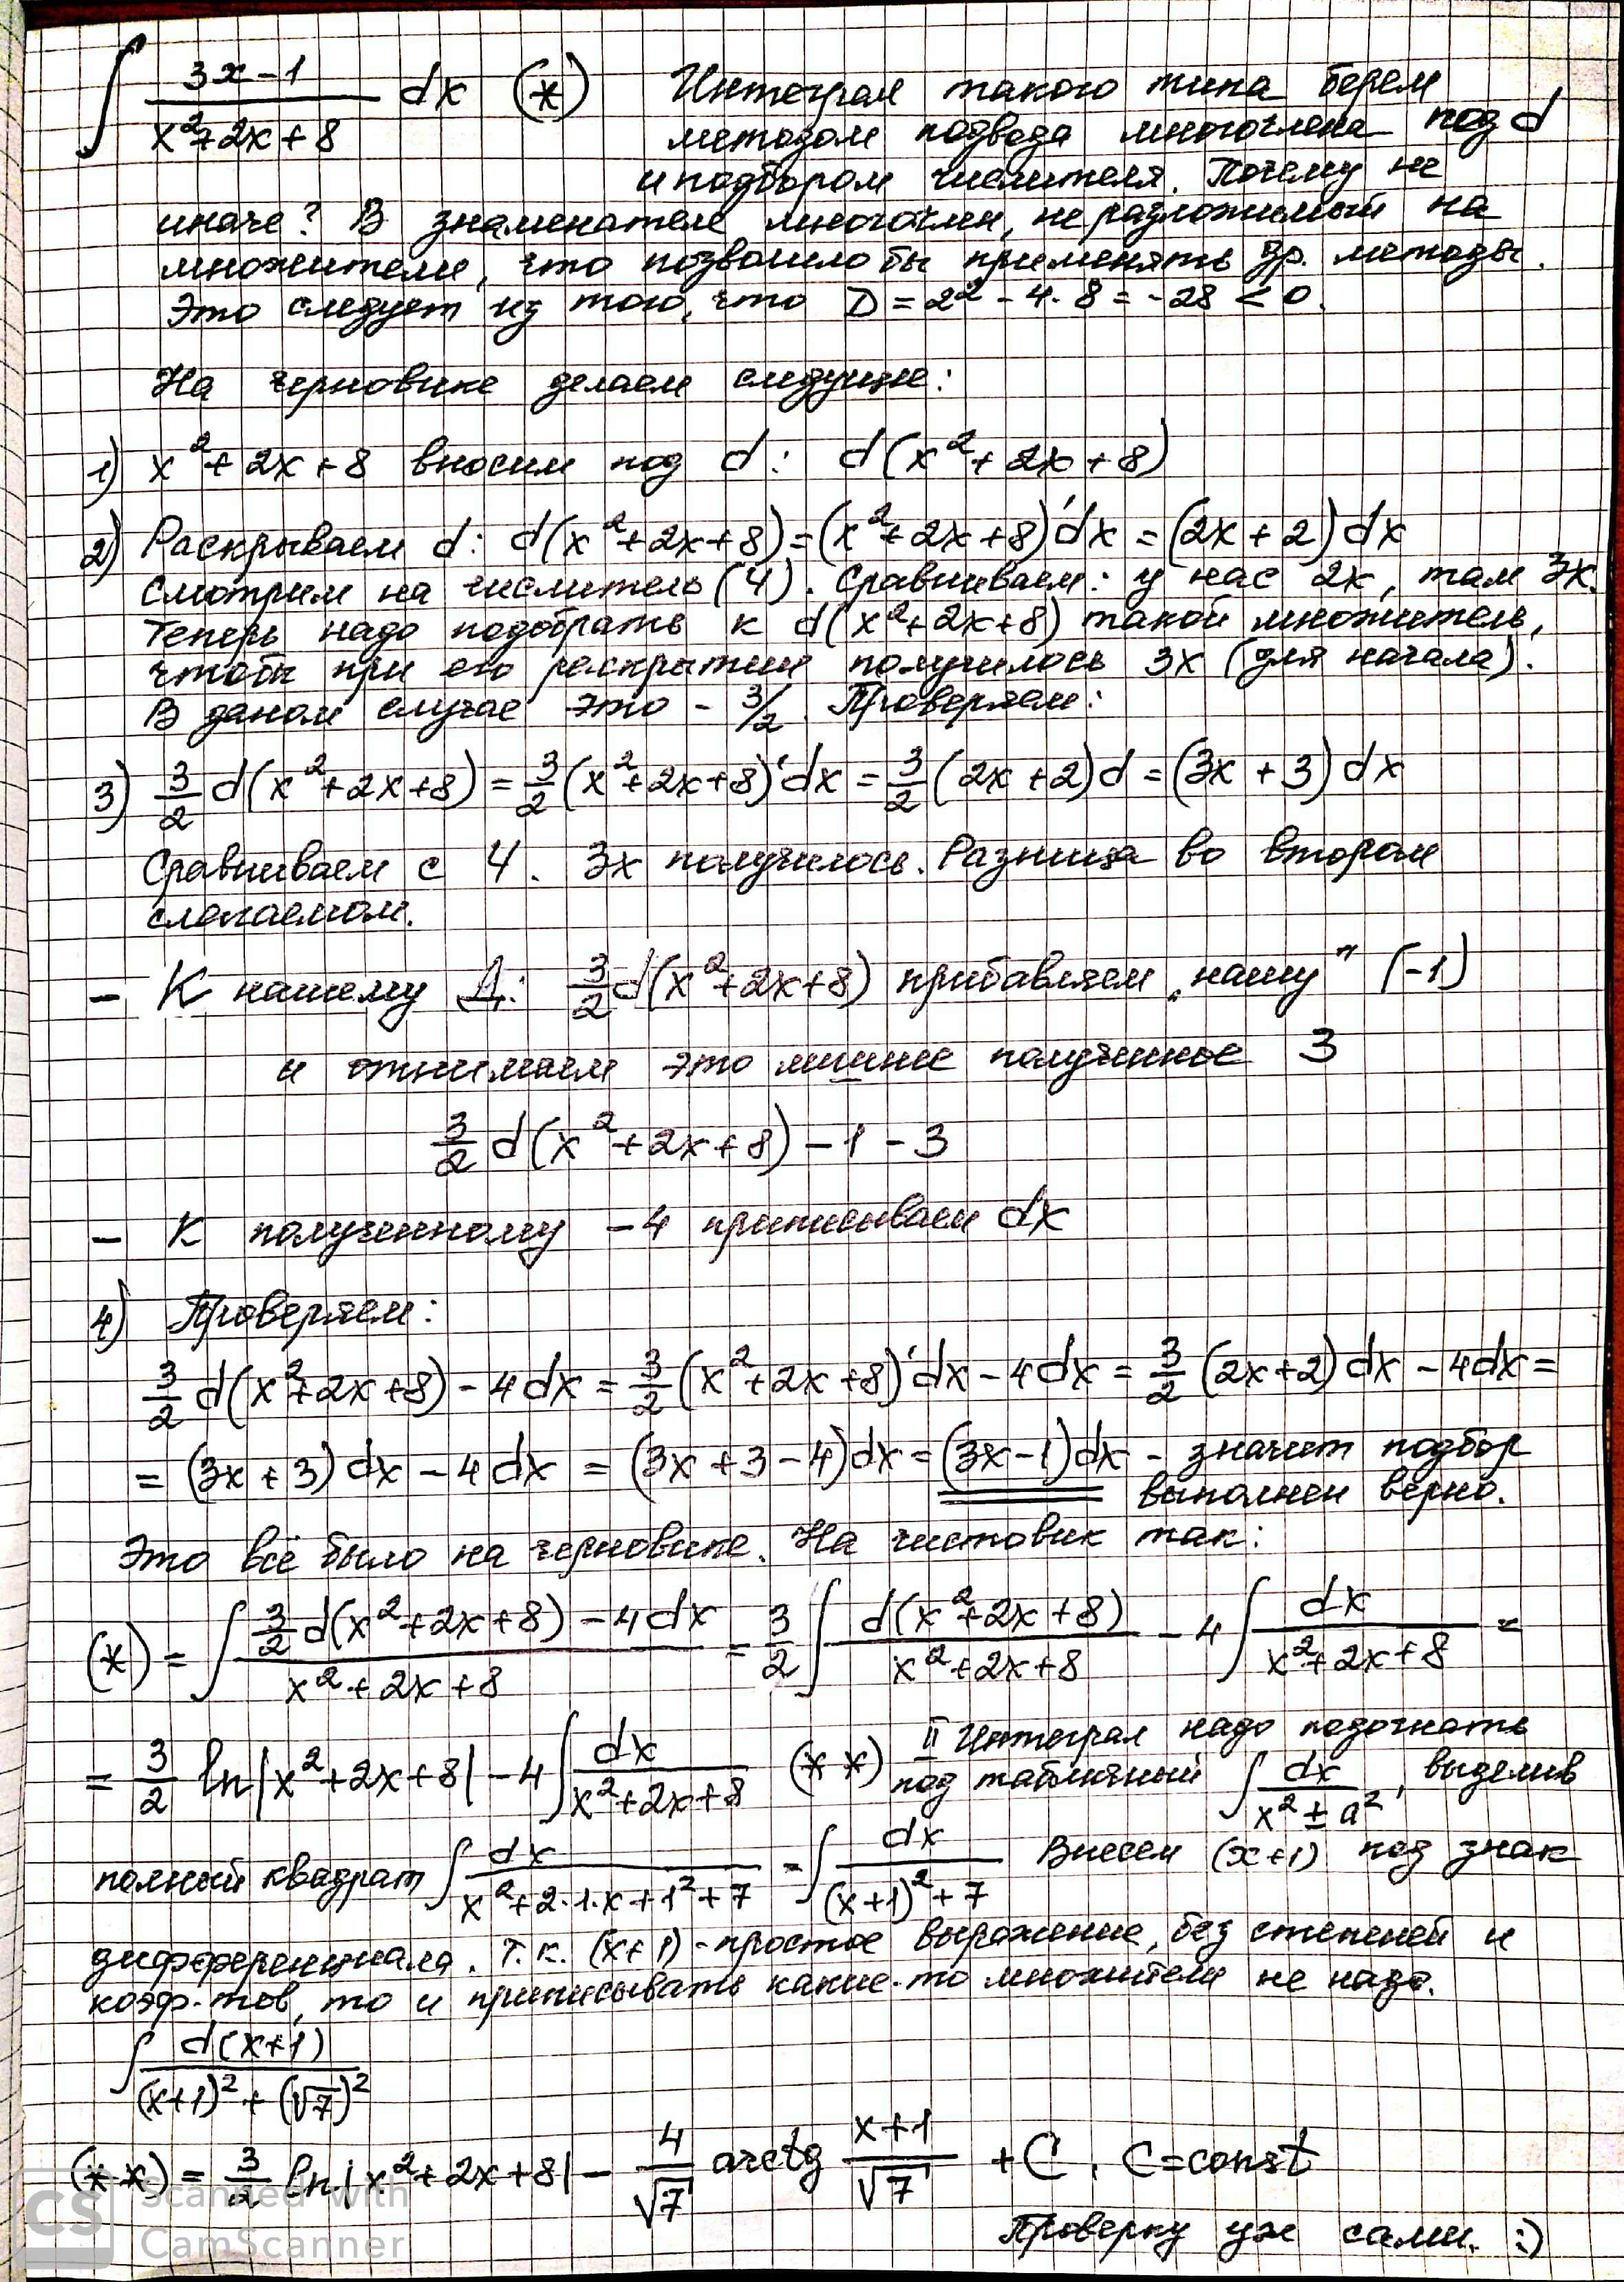 ∫ (3x-1)/(x²+2x+8) dx (*) Интеграл такого типа берем
методом подвода многочлена под d
и подбором числителя. Почему не
иначе? В знаменателе многочлен, не разложимый на
множители, что позволило бы применять др. методы.
Это следует из того, что D = 2² - 4·8 = -28 < 0.
На черновике делаем следующее:
1) x²+2x+8 вносим под d: d(x²+2x+8)
2) Раскрываем d: d(x²+2x+8)=(x²+2x+8)'dx = (2x+2)dx
Смотрим на числитель (Ч). Сравниваем: у нас 2x, там 3x.
Теперь надо подобрать к d(x²+2x+8) такой множитель,
чтобы при его раскрытии получилось 3x (для начала).
В даном случае это - 3/2. Проверяем:
3) 3/2 d(x²+2x+8) = 3/2 (x²+2x+8)'dx = 3/2 (2x+2)d = (3x+3)dx
Сравниваем с Ч. 3x получилось. Разница во втором
слагаемом.
- К нашему Д: 3/2 d(x²+2x+8) прибавляем „нашу" (-1)
и отнимаем это лишнее полученное 3
3/2 d(x²+2x+8) - 1 - 3
- К полученному -4 приписываем dx
4) Проверяем:
3/2 d(x²+2x+8) - 4dx = 3/2 (x²+2x+8)'dx - 4dx = 3/2 (2x+2)dx - 4dx =
= (3x+3)dx - 4dx = (3x+3-4)dx = (3x-1)dx - значит подбор
выполнен верно.
Это всё было на черновике. На чистовик так:
(*) = ∫ (3/2 d(x²+2x+8) - 4dx)/(x²+2x+8) = 3/2 ∫ d(x²+2x+8)/(x²+2x+8) - 4 ∫ dx/(x²+2x+8) =
= 3/2 ln|x²+2x+8| - 4 ∫ dx/(x²+2x+8) (**) II Интеграл надо подогнать
под табличный ∫ dx/(x²±a²), выделив
полный квадрат ∫ dx/(x²+2·1·x+1²+7) = ∫ dx/((x+1)²+7) Внесем (x+1) под знак
дифференциала. Т.к. (x+1) - простое выражение, без степеней и
коэф-тов, то и приписывать какие-то множители не надо.
∫ d(x+1)/((x+1)²+(√7)²)
(**) = 3/2 ln|x²+2x+8| - 4/√7 arctg (x+1)/√7 + C, C=const
Проверку уж сами. :)
CS Scanned with
CamScanner